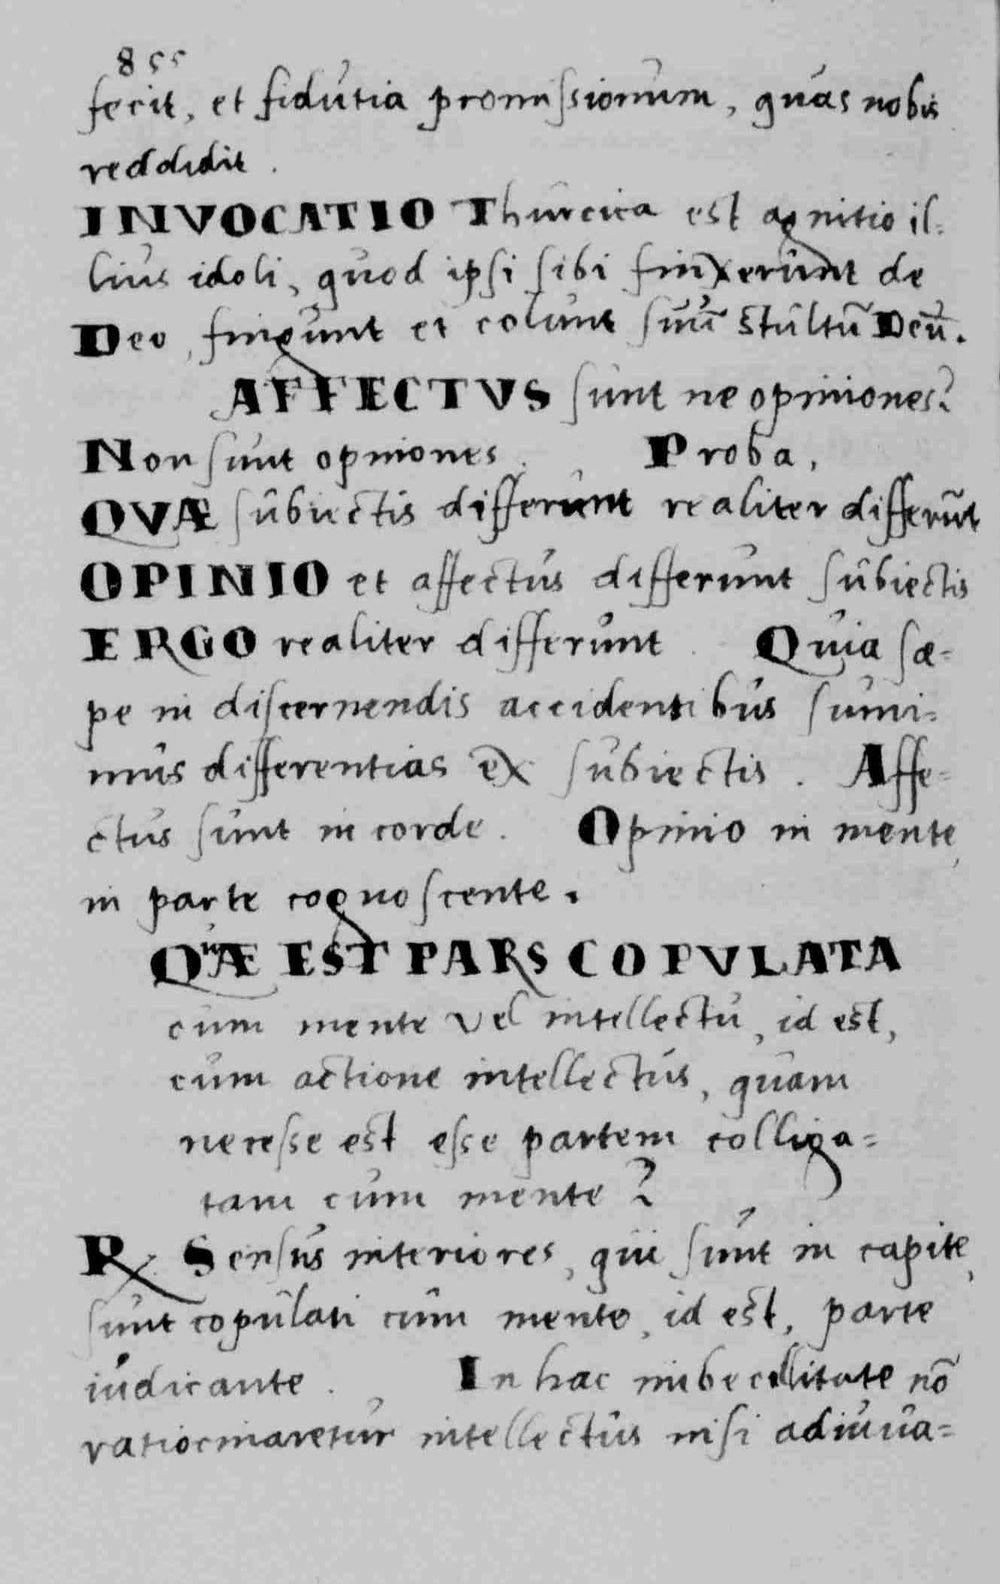 855
fecit, et fidutia promissionum, quas nobis
reddidit.
INVOCATIO Thurcica est agnitio il-
lius idoli, quod ipsi sibi finxerunt de
Deo, fingunt et colunt suũ stultũ Deũ.
AFFECTVS sunt ne opiniones?
Non sunt opiniones. Proba,
QVÆ subiectis differunt realiter differũt
OPINIO et affectus differunt subiectis
ERGO realiter differunt. Quia sæ-
pe in discernendis accidentibus sumi-
mus differentias ex subiectis. Affe-
ctus sunt in corde. Opinio in mente,
in parte cognoscente.
QuÆ EST PARS COPVLATA
cum mente vel intellectu, id est,
cum actione intellectus, quam
necesse est esse partem colliga-
tam cum mente?
R. Sensus interiores, qui sunt in capite,
sunt copulati cum mente, id est, parte
iudicante. In hac imbecillitate nõ
ratiocinaretur intellectus nisi adiuua-